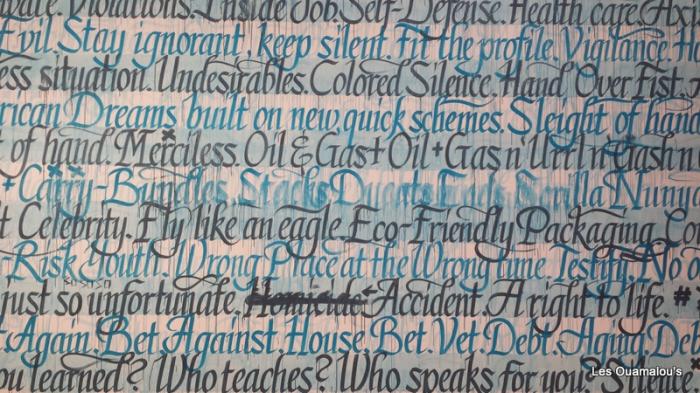 Violations. Inside Job. Self-Defense. Health care.
Evil. Stay ignorant, keep silent. Fit the profile. Vigilance.
ess situation. Undesirables. Colored Silence. Hand Over Fist.
rican Dreams built on new, quick schemes. Sleight of hand
t of hand. Merciless. Oil & Gas + Oil + Gas n'
+ Carry-Bundles. Stacks Ducats
t Celebrity. Fly like an eagle. Eco-Friendly Packaging.
-Risk Youth. Wrong Place at the Wrong time. Testify. No
just so unfortunate. Homicide Accident. A right to life. #
t. Again. Bet. Against. House Bet Vet. Debt. Aging Deb
ou learned? Who teaches? Who speaks for you? Silence.
Les Ouamalou's